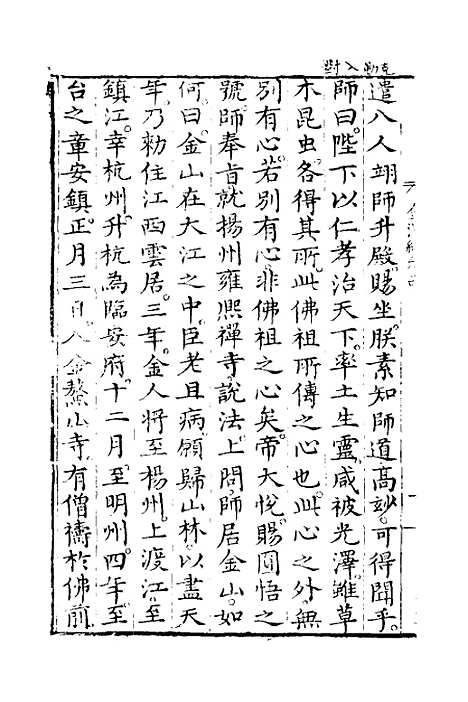 克勤入對
遣八人翊師升殿賜坐朕素知師道高妙可得聞乎
師曰陛下以仁孝治天下率土生靈咸被光澤雖草
木昆虫各得其所此佛祖所傳之心也此心之外無
別有心若別有心非佛祖之心矣帝大悅賜圓悟之
號師奉旨就揚州雍熙禪寺說法上問師居金山如
何曰金山在大江之中臣老且病願歸山林以盡天
年乃勑住江西雲居三年金人將至楊州上渡江至
鎮江幸杭州升杭為臨安府十二月至明州四年至
台之章安鎮正月三日入金鰲山寺有僧禱於佛前